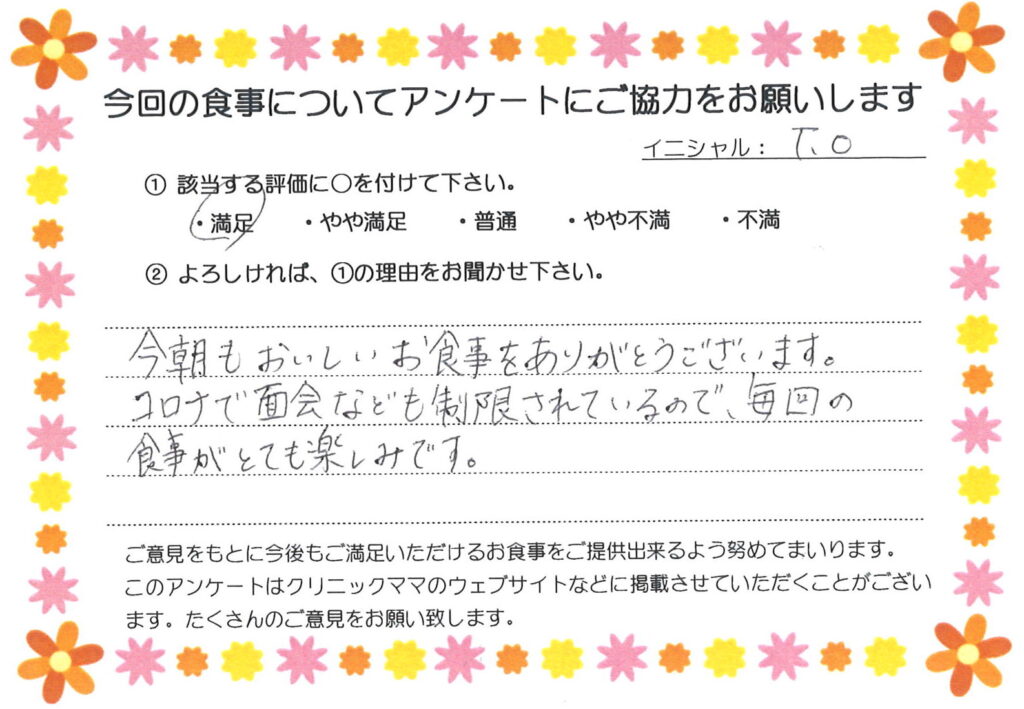 今回の食事についてアンケートにご協力をお願いします
イニシャル： T.O
① 該当する評価に○を付けて下さい。
・満足 ・やや満足 ・普通 ・やや不満 ・不満
② よろしければ、①の理由をお聞かせ下さい。
今朝もおいしいお食事をありがとうございます。
コロナで面会なども制限されているので、毎回の
食事がとても楽しみです。
ご意見をもとに今後もご満足いただけるお食事をご提供出来るよう努めてまいります。
このアンケートはクリニックママのウェブサイトなどに掲載させていただくことがござい
ます。たくさんのご意見をお願い致します。